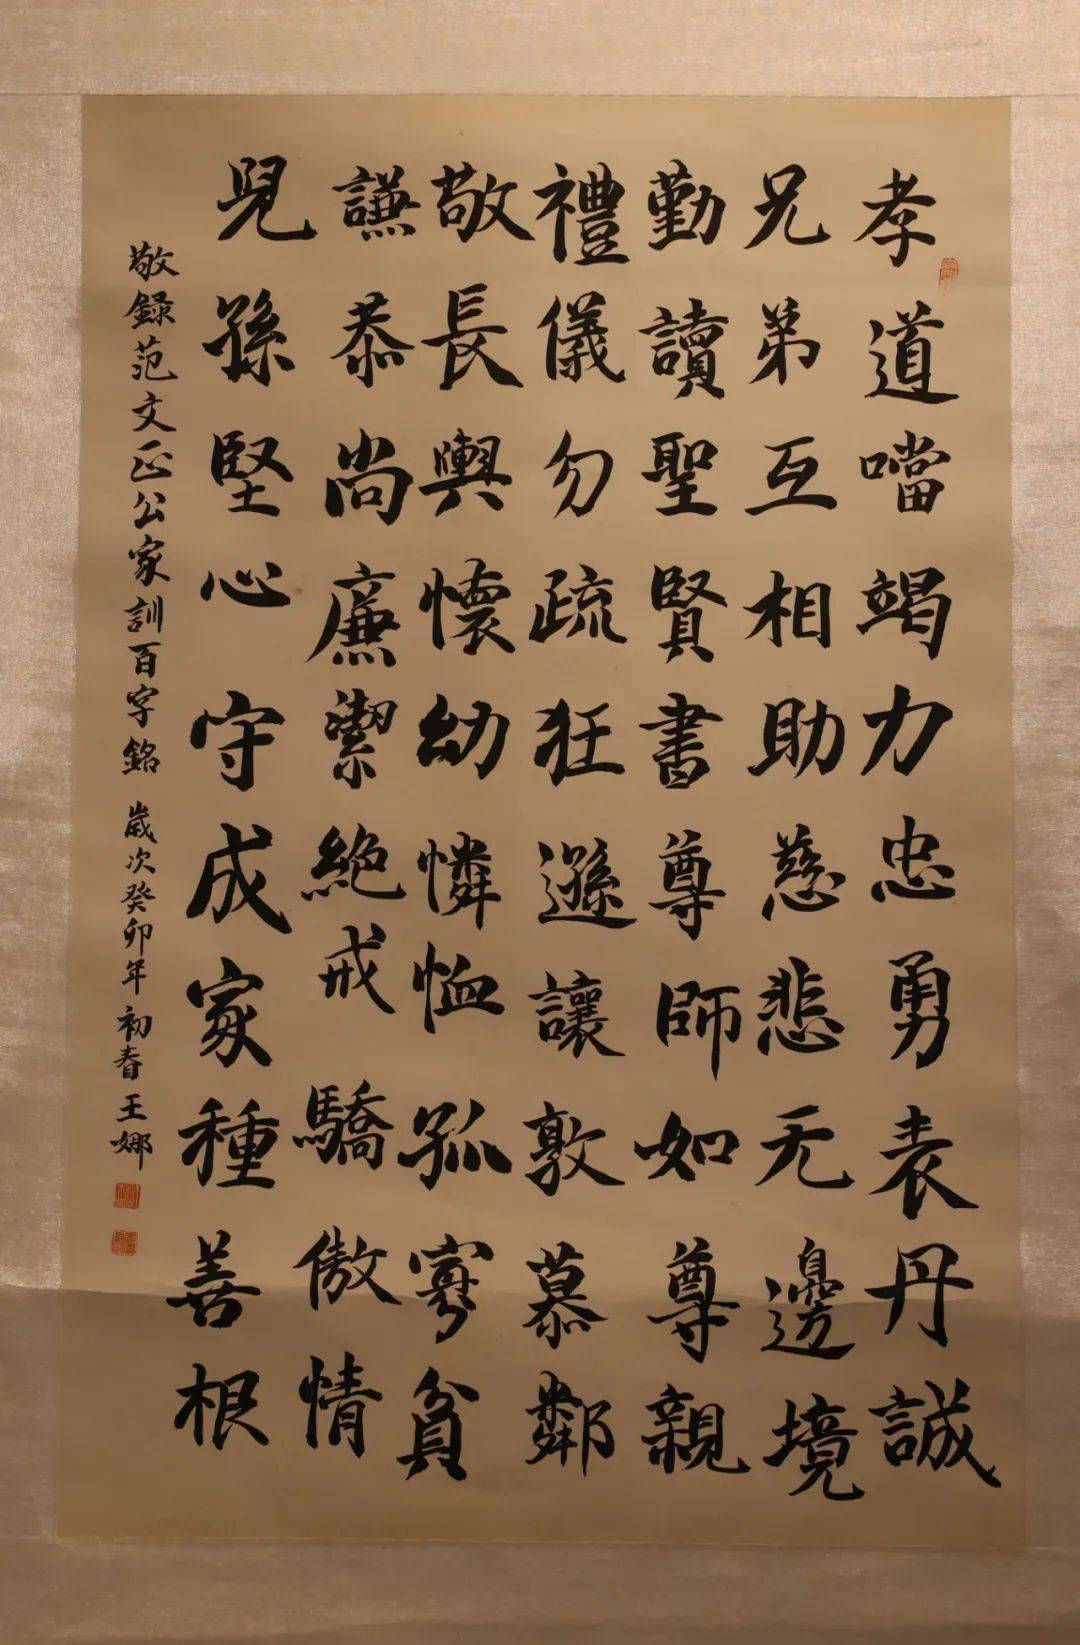 孝道當竭力忠勇表丹誠
兄弟互相助慈悲无邊境
勤讀聖賢書尊師如尊親
禮儀勿疏狂遜讓敦慕鄰
敬長輿懷幼憐恤孤寡貧
謙恭尚廉潔絶戒驕傲情
兒孫堅心守成家種善根
敬録范文正公家訓百字銘 歲次癸卯年初春王娜